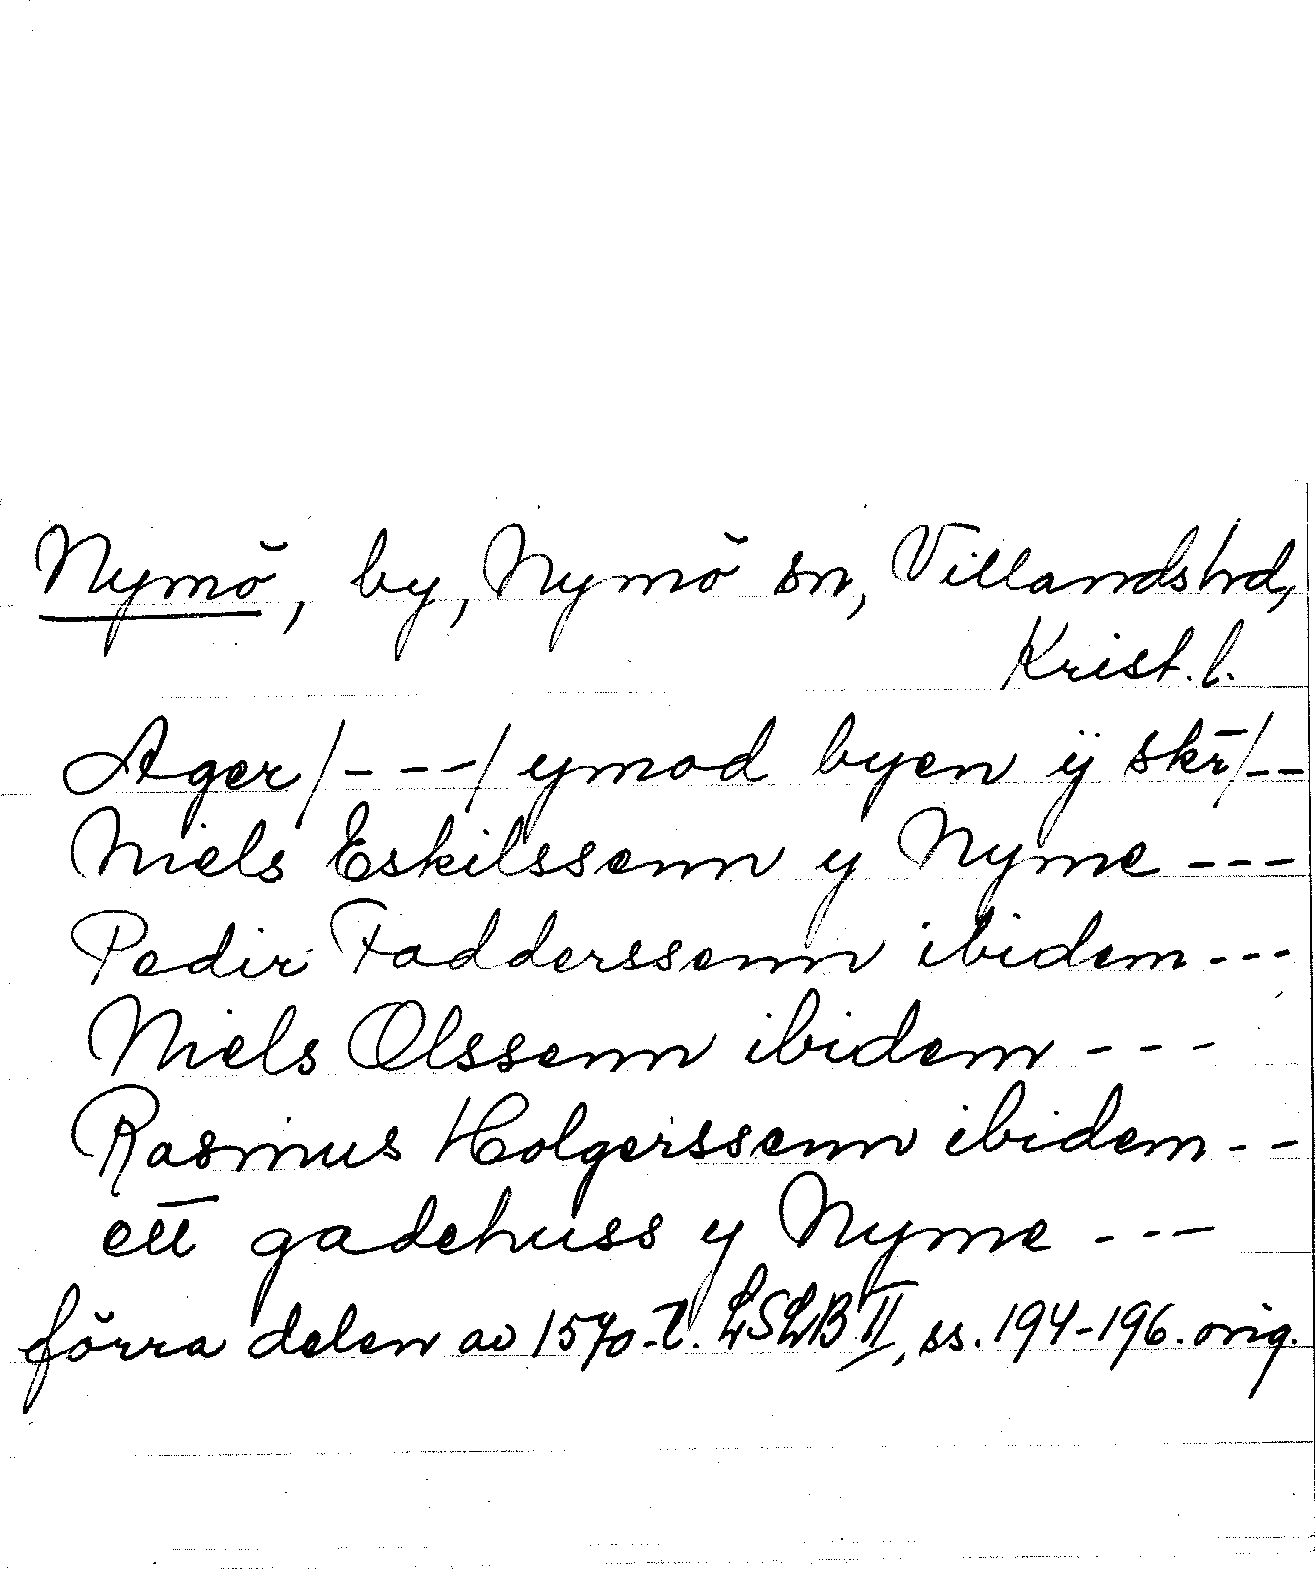 Nymö, by, Nymö sn, Villandshrd,
Krist. l.
Ager/- - -/ ymod byen ÿ skr̄/- -
Niels Eskilssenn y Nyme - - -
Pedir Fadderssenn ibidem - - -
Niels Olssenn ibidem - - -
Rasmus Holgerssenn ibidem - -
ett gadehuss y Nyme - - -
förra delen av 1570-t. LSLB II, ss. 194-196. orig.